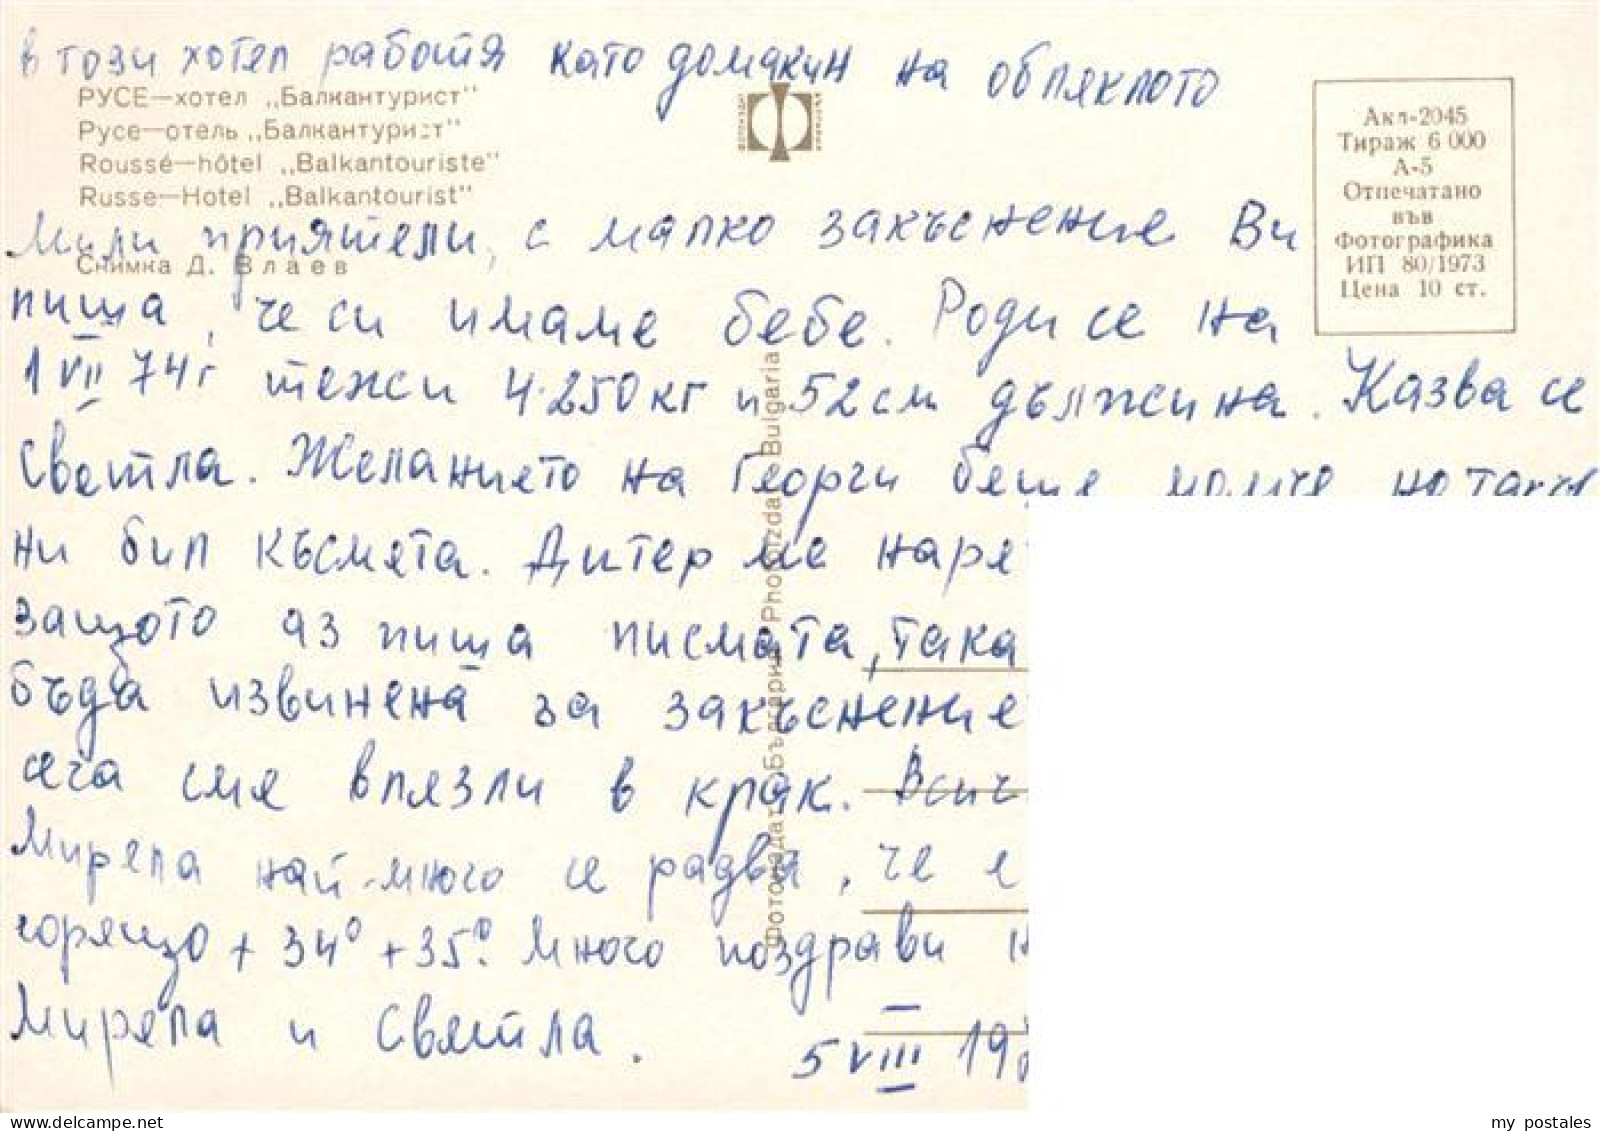 в този хотел работя като домакин на облеклото
РУСЕ—хотел „Балкантурист"
Русе—отель „Балкантурист"
Roussé—hôtel „Balkantouriste"
Russe—Hotel „Balkantourist"
Снимка Д. Влаев
Акл-2045
Тираж 6 000
А-5
Отпечатано
във
Фотографика
ИП 80/1973
Цена 10 ст.
Мили приятели, с малко закъснение Ви
пиша, че си имаме бебе. Роди се на
1 VII 74 г тежи 4.250 кг и 52 см дължина. Казва се
Светла. Желанието на Георги беше момче но такъв
ни бил късмета. Дитер ме
защото аз пиша писмата, така
бъда извинена за закъснение
сега сме влязли в крак.
Мирела най-много се радва, че е
горещо + 34° + 35°. Много поздрави
Мирела и Светла.
5 VIII 19
Фотоиздат България Photoizdat Bulgaria
my postales
delcampe.net